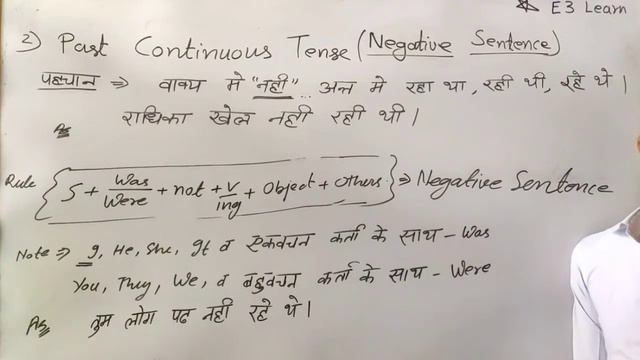 E3 Learn
2) Past Continuous Tense (Negative Sentence)
पहचान ⇒ वाक्य मे "नही" ... अन्त मे रहा था, रही थी, रहे थे।
राधिका खेल नही रही थी।
Rule { S + Was/Were + not + V/ing + Object + Others } ⇒ Negative Sentence
Note ⇒ I, He, She, It व एकवचन कर्ता के साथ - Was
You, They, We, व बहुवचन कर्ता के साथ - Were
तुम लोग पढ नही रहे थे।